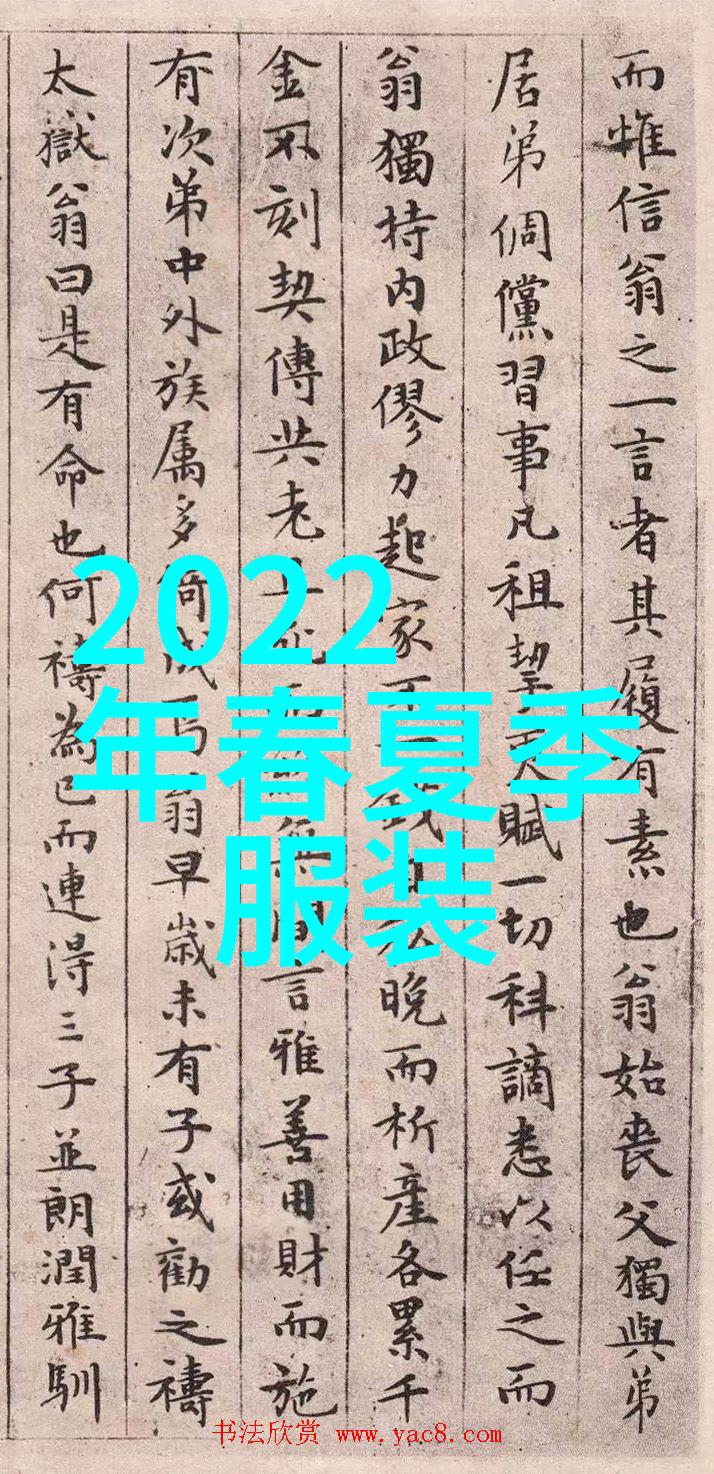 而惟信翁之一言者其履有素也翁始喪父獨與弟
居弟倜儻習事凡租挈更賦一切科謫悉以任之而
翁獨持内政僇力起家不一錢自私晚而析產各累千
金不刻契傳共老且死而無間言雅善用財而施
有次弟中外族属多倚成焉翁早歲未有子或勸之禱
太嶽翁曰是有命也何禱為已而連得三子並朗潤雅馴
2022
年春夏季
服装
书法欣赏 www.yac8.com